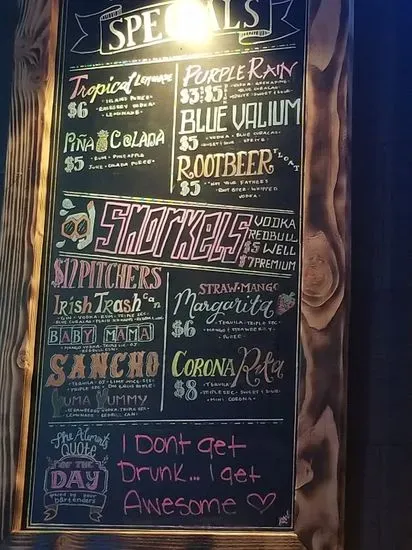 SPECIALS
Tropical LEMONADE
$6
• ISLAND PUNCH •
RASPBERRY VODKA •
• LEMONADE •
PIÑA COLADA
$5
• RUM • PINEAPPLE
JUICE • COLADA PUREE •
PURPLE RAIN
$3 $5
VODKA • GRENADINE
BLUE CURACAO
BLUE VALIUM
$5
• VODKA • BLUE CURACAO •
SWEET & SOUR • SPRITE •
ROOTBEER FLOAT
$5
• NOT YOUR FATHERS
ROOT BEER • WHIPPED
VODKA •
SMORKELS
VODKA
REDBULL
$5 WELL
$7 PREMIUM
$12 PITCHERS
Irish Trash Can
• GIN • VODKA • RUM • TRIPLE SEC •
BABY MAMA
SANCHO
• TEQUILA • OJ • LIME JUICE •
YUMA YUMMY
STRAWBERRY VODKA • TRIPLE SEC •
LEMONADE • REDBULL CAN •
STRAW-MANGO
Margarita
$6
• TEQUILA • TRIPLE SEC
MANGO & STRAWBERRY
PUREE •
CORONA Rita
$8
• TEQUILA •
TRIPLE SEC • SWEET & SOUR •
MINI CORONA •
The Aliments
QUOTE
OF THE
DAY
voted by your
bartenders
I Dont get
Drunk... I get
Awesome ♡